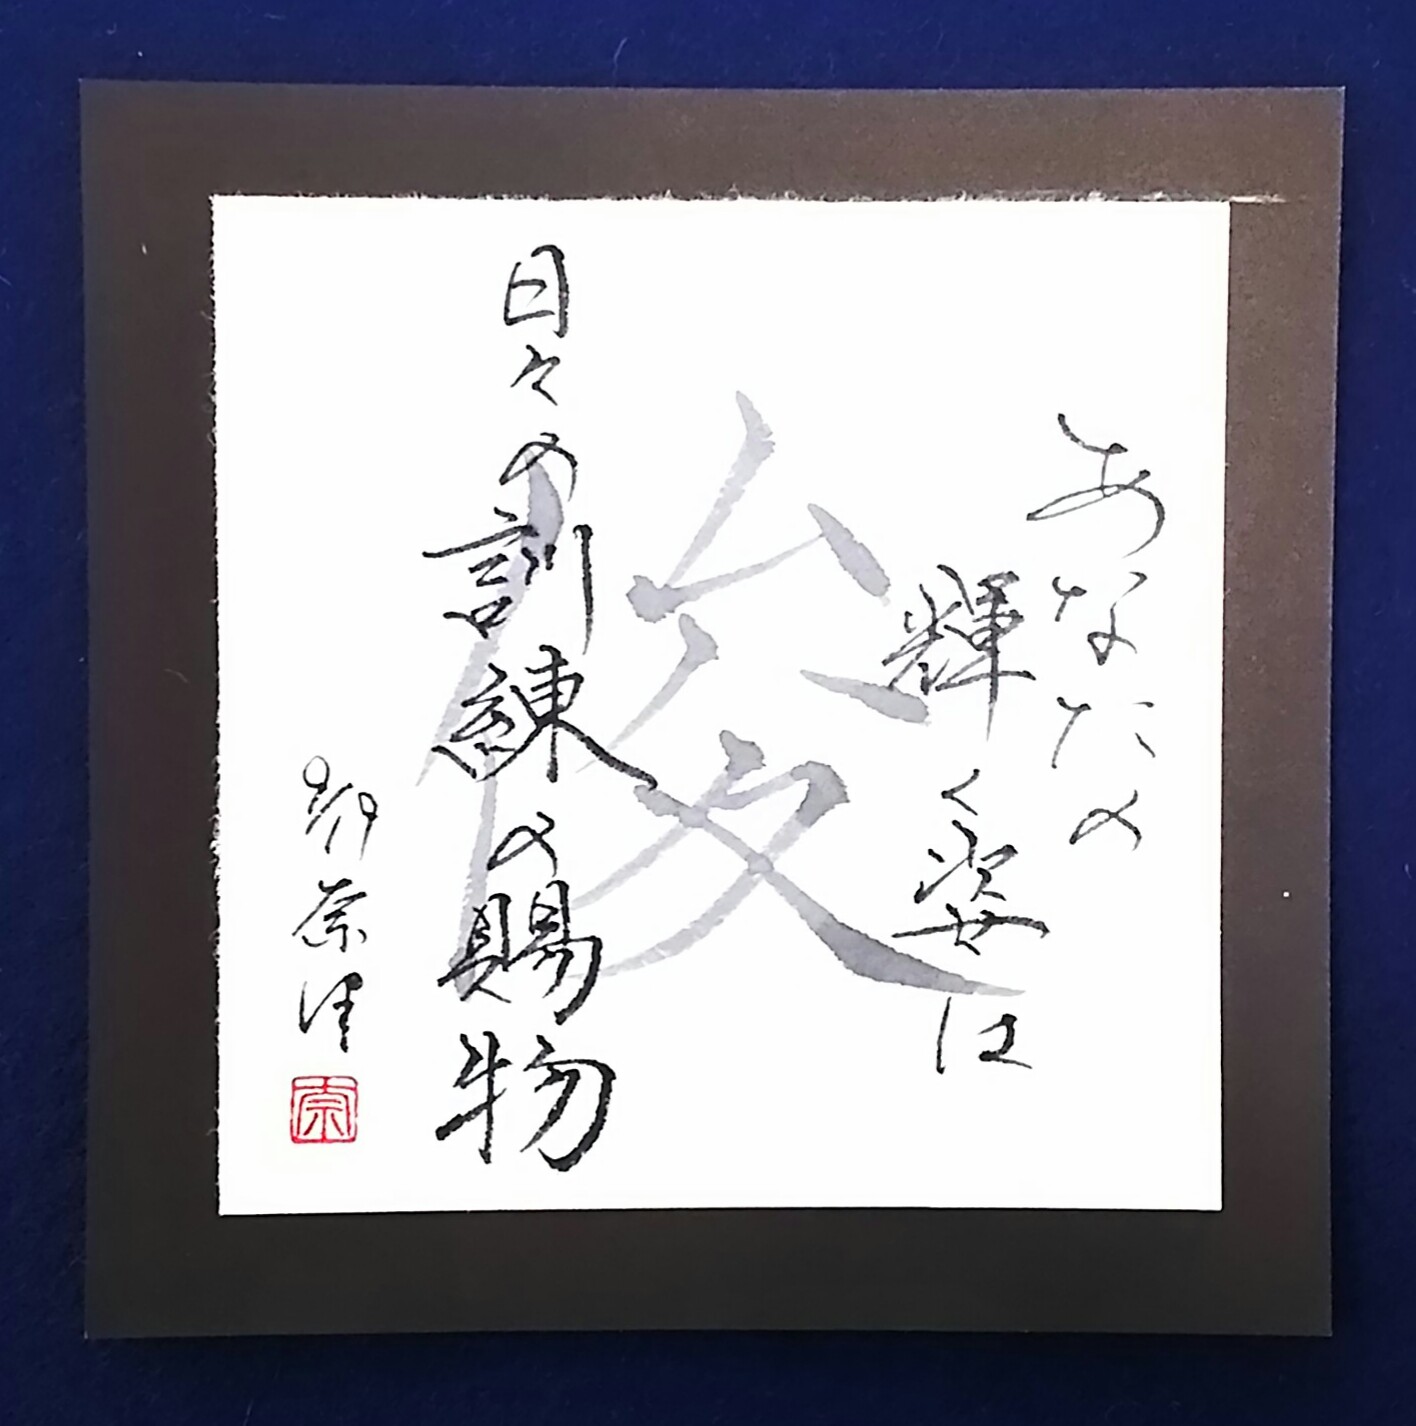 あなたの
輝く姿は
日々の訓練の賜物
俊
9/19 奈津